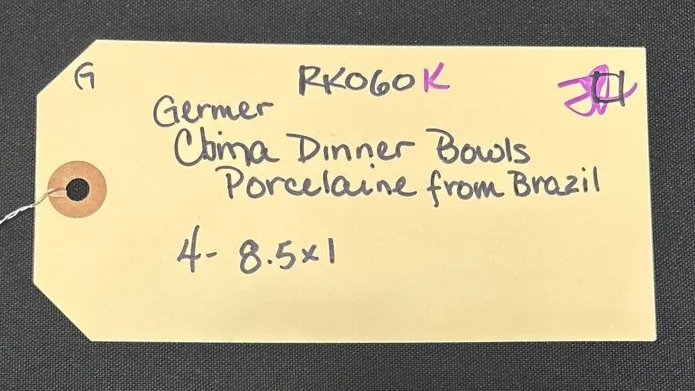 G
RK060K
Germer
China Dinner Bowls
Porcelaine from Brazil
4- 8.5x1